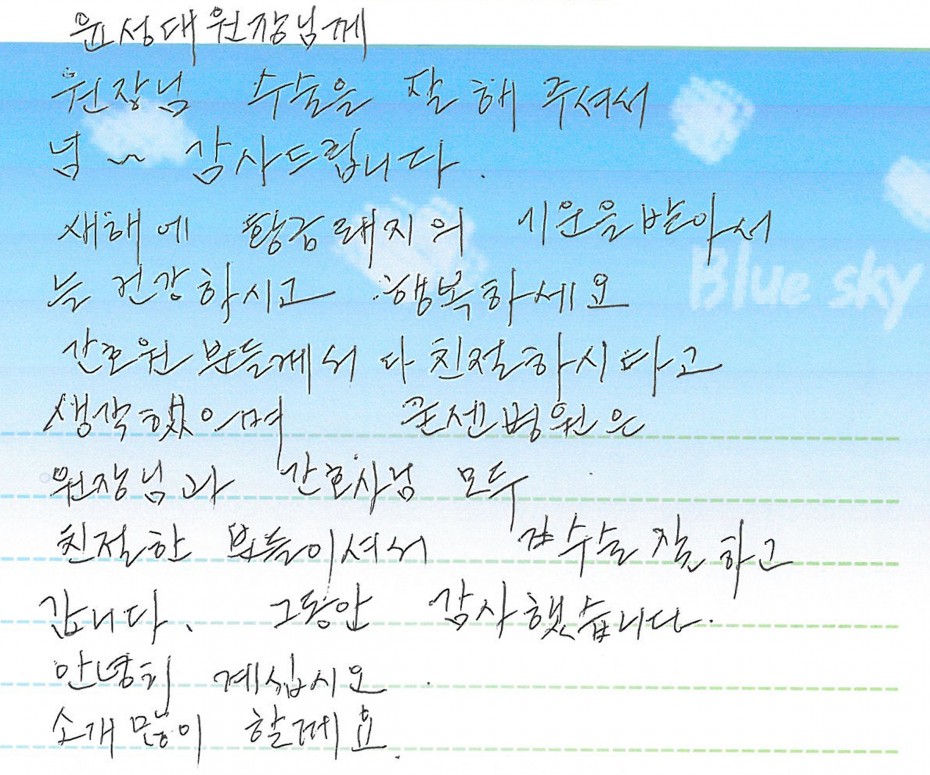 윤성대원장님께
원장님 수술을 잘 해 주셔서
넘~ 감사드립니다.
새해에 황금돼지의 기운을받아서
늘 건강하시고 행복하세요
Blue sky
간호원 분들께서 다 친절하시다고
생각했으며 굳센병원은
원장님과 간호사님 모두
친절한 분들이셔서 수술 잘 하고
갑니다. 그동안 감사했습니다.
안녕히 계십시오.
소개 많이 할께요.